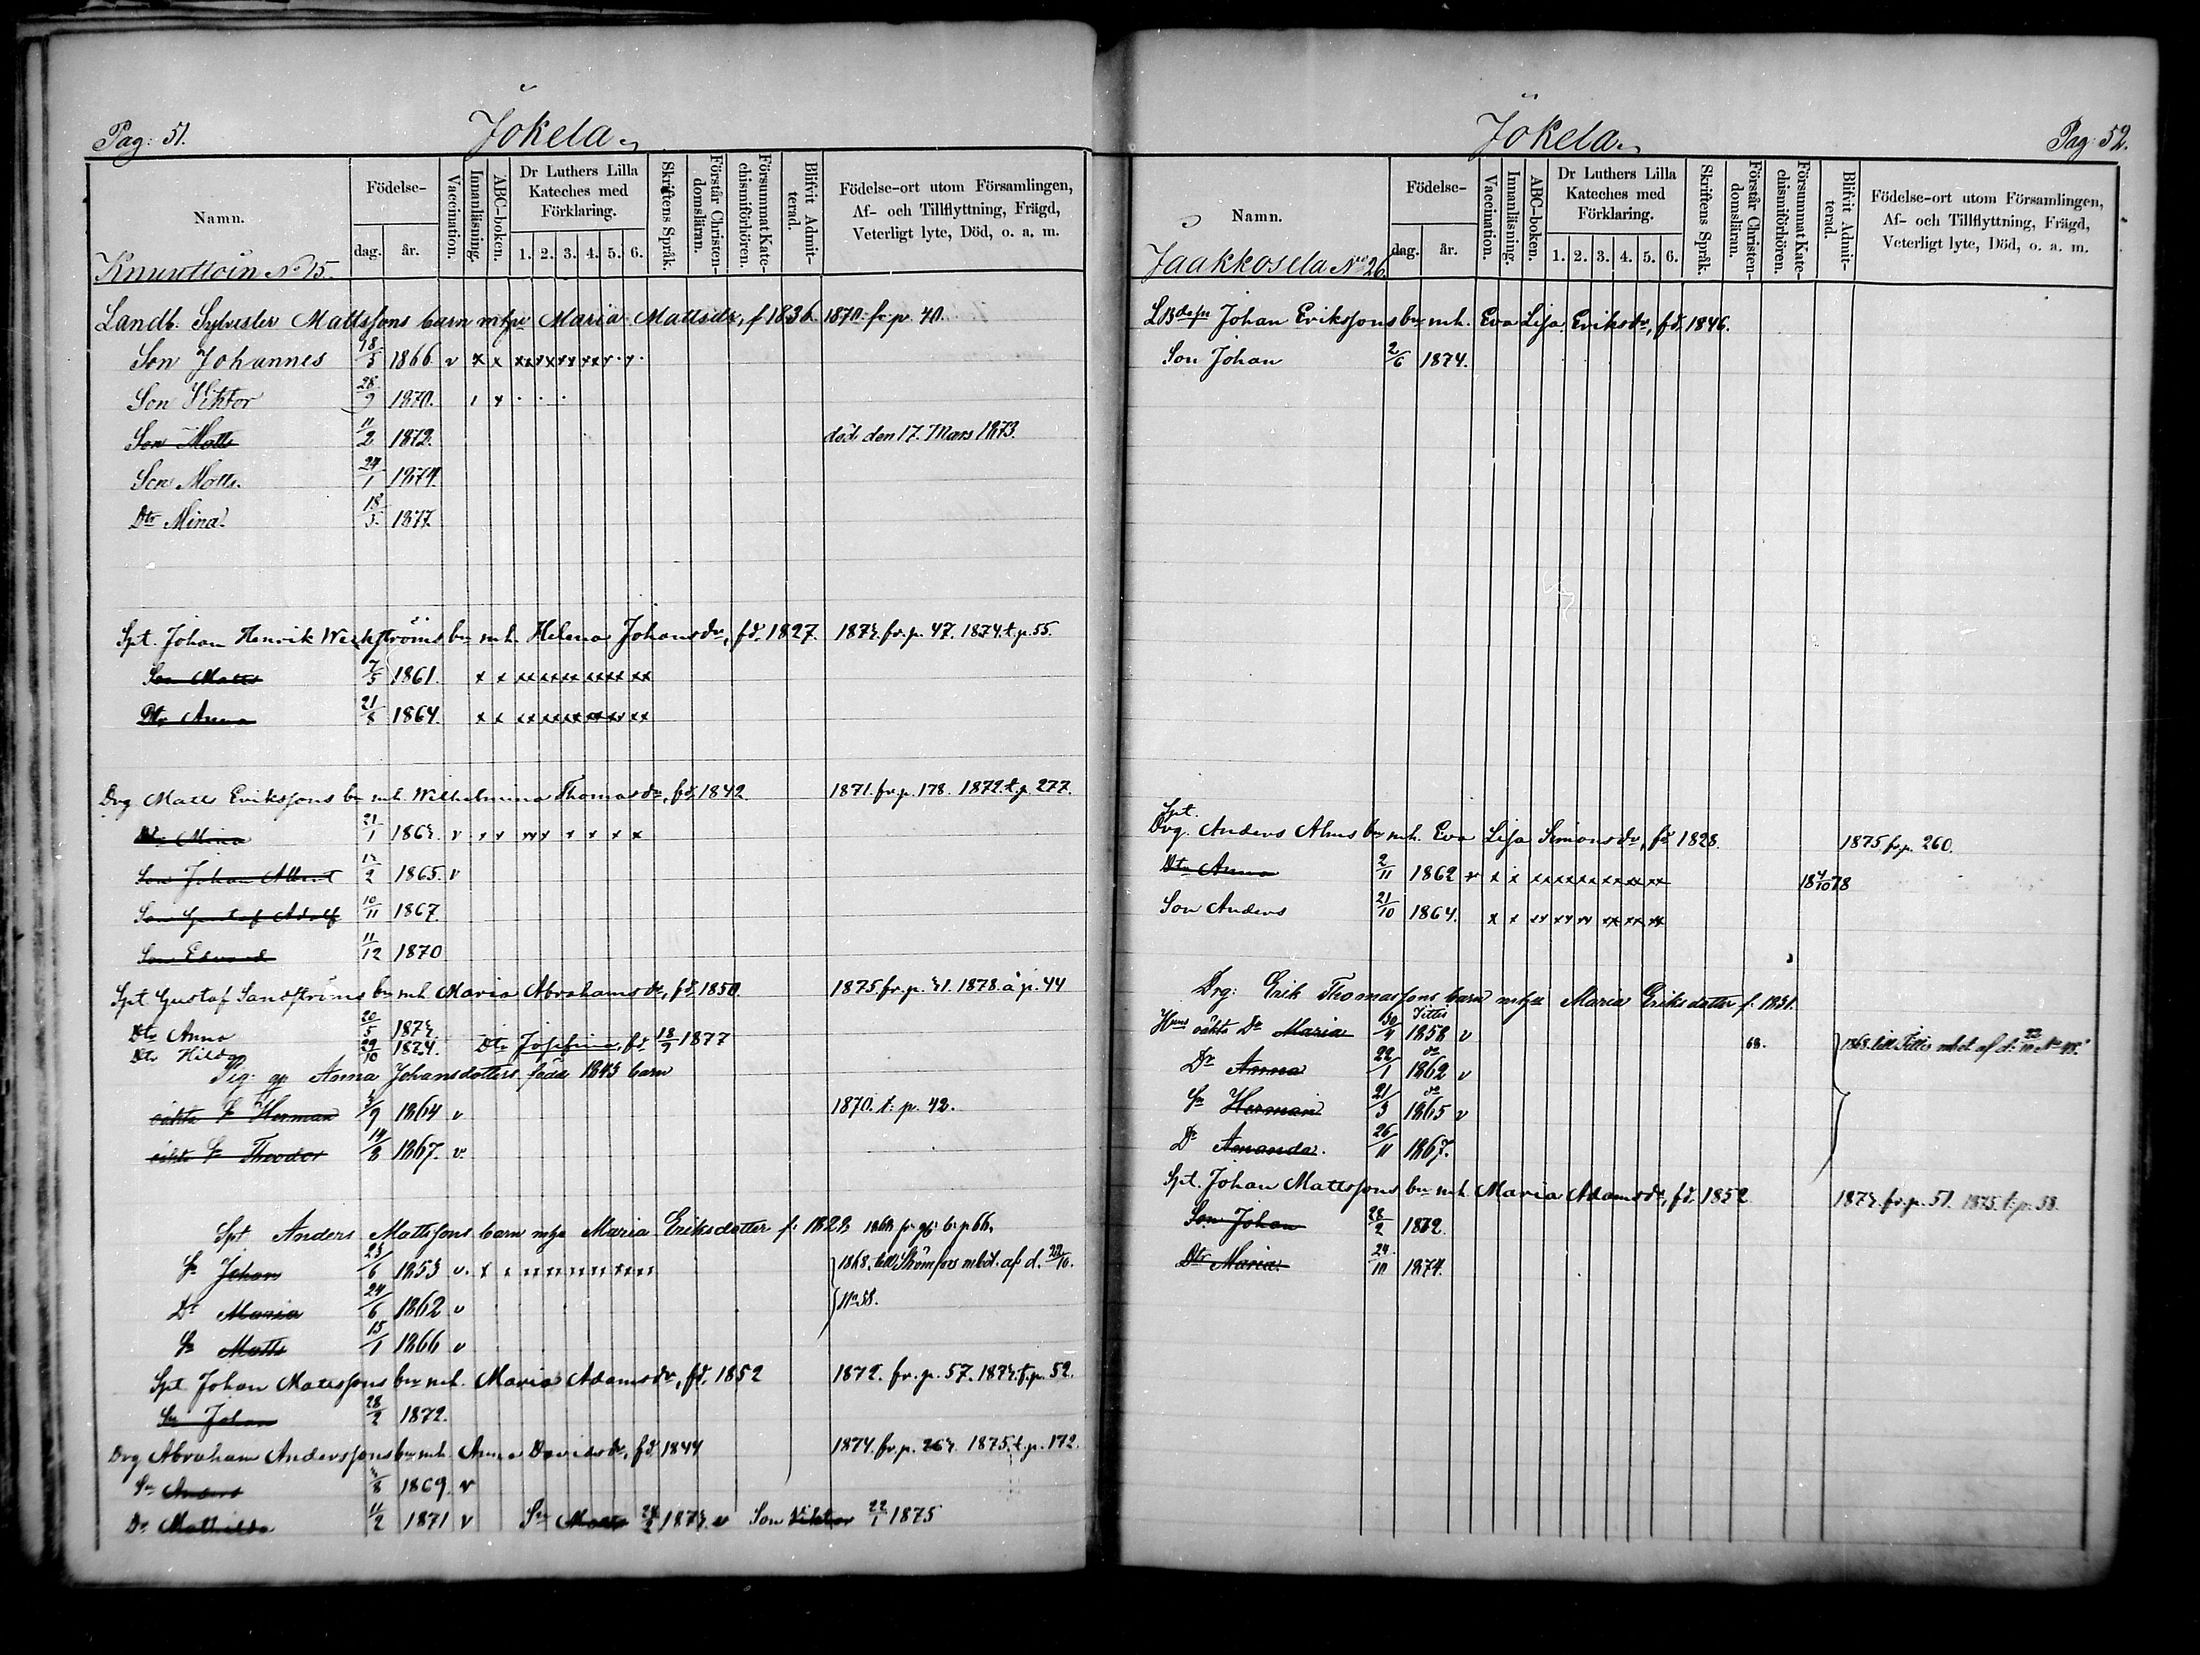 Pag: 51.
Jokela
Namn.
Födelse-
dag.
år.
Vaccination.
Innanläsning.
ABC-boken.
Dr Luthers Lilla Kateches med Förklaring.
1. 2. 3. 4. 5. 6.
Skriftens Språk.
Förstår Christendomsläran.
Försummat Katechismiförhören.
Blifvit Admitterad.
Födelse-ort utom Församlingen,
Af- och Tillflyttning, Frägd,
Veterligt lyte, Död, o. a. m.
Landb. Sylvester Mattssons barn m hu Maria Mattsdr, f 1836. 1870. fr. p. 40.
Son Johannes 18/5 1866 v x x
Son Viktor 28/9 1870.
Son Matts 11/2 1872. död den 17. Mars 1873.
Son Matts. 24/1 1874.
Dtr Mina. 18/3. 1877.
Spt. Johan Henrik bn m h. Helena Johansdr, fd. 1827. 1873. fr. p. 47. 1874. t. p. 55.
Son Matts 7/5 1861. x x xx xx xx xx xx xx
Dtr Anna 1864. x x xx xx xx xx xx xx
Drg Matts Erikssons bn m h. Wilhelmina Thomasdr, fd. 1842 1871. fr. p. 178. 1872. t. p. 277.
Dtr Mina 21/1 1863. v
Son Johan Albert 1865. v
Son Gustaf Adolf 10/11 1867.
Son Edvard 11/12 1870
Spt. Gustaf Sandströms bn m h. Maria Abrahamsdr, fd. 1850. 1875 fr. p. 31. 1878. å p. 44
Dtr Anna 20/5 1873.
Dtr Hilda 29/10 1874. Dtr Josefina, fd. 18/9 1877
Pig: Anna Johansdotters född 1843 barn
oäkta Sn Herman 1864 v 1870. t. p. 42.
oäkta Sn Theodor 14/8 1867. v.
Spt Anders Mattssons barn m hu Maria Eriksdotter f.
Sn Johan 23/6 1853 v. 1868. till af d. 22/10.
Dr Maria 24/6 1862 v
Sn Matts 15/1 1866 v
Spt Johan Matssons bn m h. Maria Adamsdr, fd. 1852 1872. fr. p. 57. 1873. t. p. 52.
Sn Johan 28/2 1872.
Drg Abraham Anderssons bn m h. Anna Davidsdr, fd. 1844 1874. fr. p. 263. 1875. t. p. 172.
Sn Anders 1869. v
Dr Mathilda 11/2 1871 v Sn Matts 1873. v Son Viktor 22/1 1875
Jokela
Pag: 52.
Namn.
Jaakkosela No 26.
Födelse-
dag.
år.
Vaccination.
Innanläsning.
ABC-boken.
Dr Luthers Lilla Kateches med Förklaring.
1. 2. 3. 4. 5. 6.
Skriftens Språk.
Förstår Christendomsläran.
Försummat Katechismiförhören.
Blifvit Admitterad.
Födelse-ort utom Församlingen,
Af- och Tillflyttning, Frägd,
Veterligt lyte, Död, o. a. m.
Johan Erikssons bn m h. Eva Lisa Eriksdr, fd. 1846.
Son Johan 2/6 1874.
Spt.
Drg. Anders Alms bn m h. Eva Lisa Simonsdr, fd 1828. 1875 fr. p. 260.
Dtr Anna 2/11 1862 v x x xx xx xx xx xx xx 18 4/10 78
Son Anders 21/10 1864. x x xx xx xx xx xx xx
Drg: Erik Thomassons barn m hu Maria Eriksdotter f. 1831.
oäkta Dr Maria 1858 v 68.
Dr Anna 22/1 1862 v
Sn Herman 21/3 1865 v
Dr Amanda. 26/11 1867.
Spt. Johan Mattssons bn m h. Maria Adamsdr, fd. 1852 1873. fr. p. 51. 1875. t. p. 58.
Son Johan 28/2 1872.
Dtr Maria. 24/10 1874.